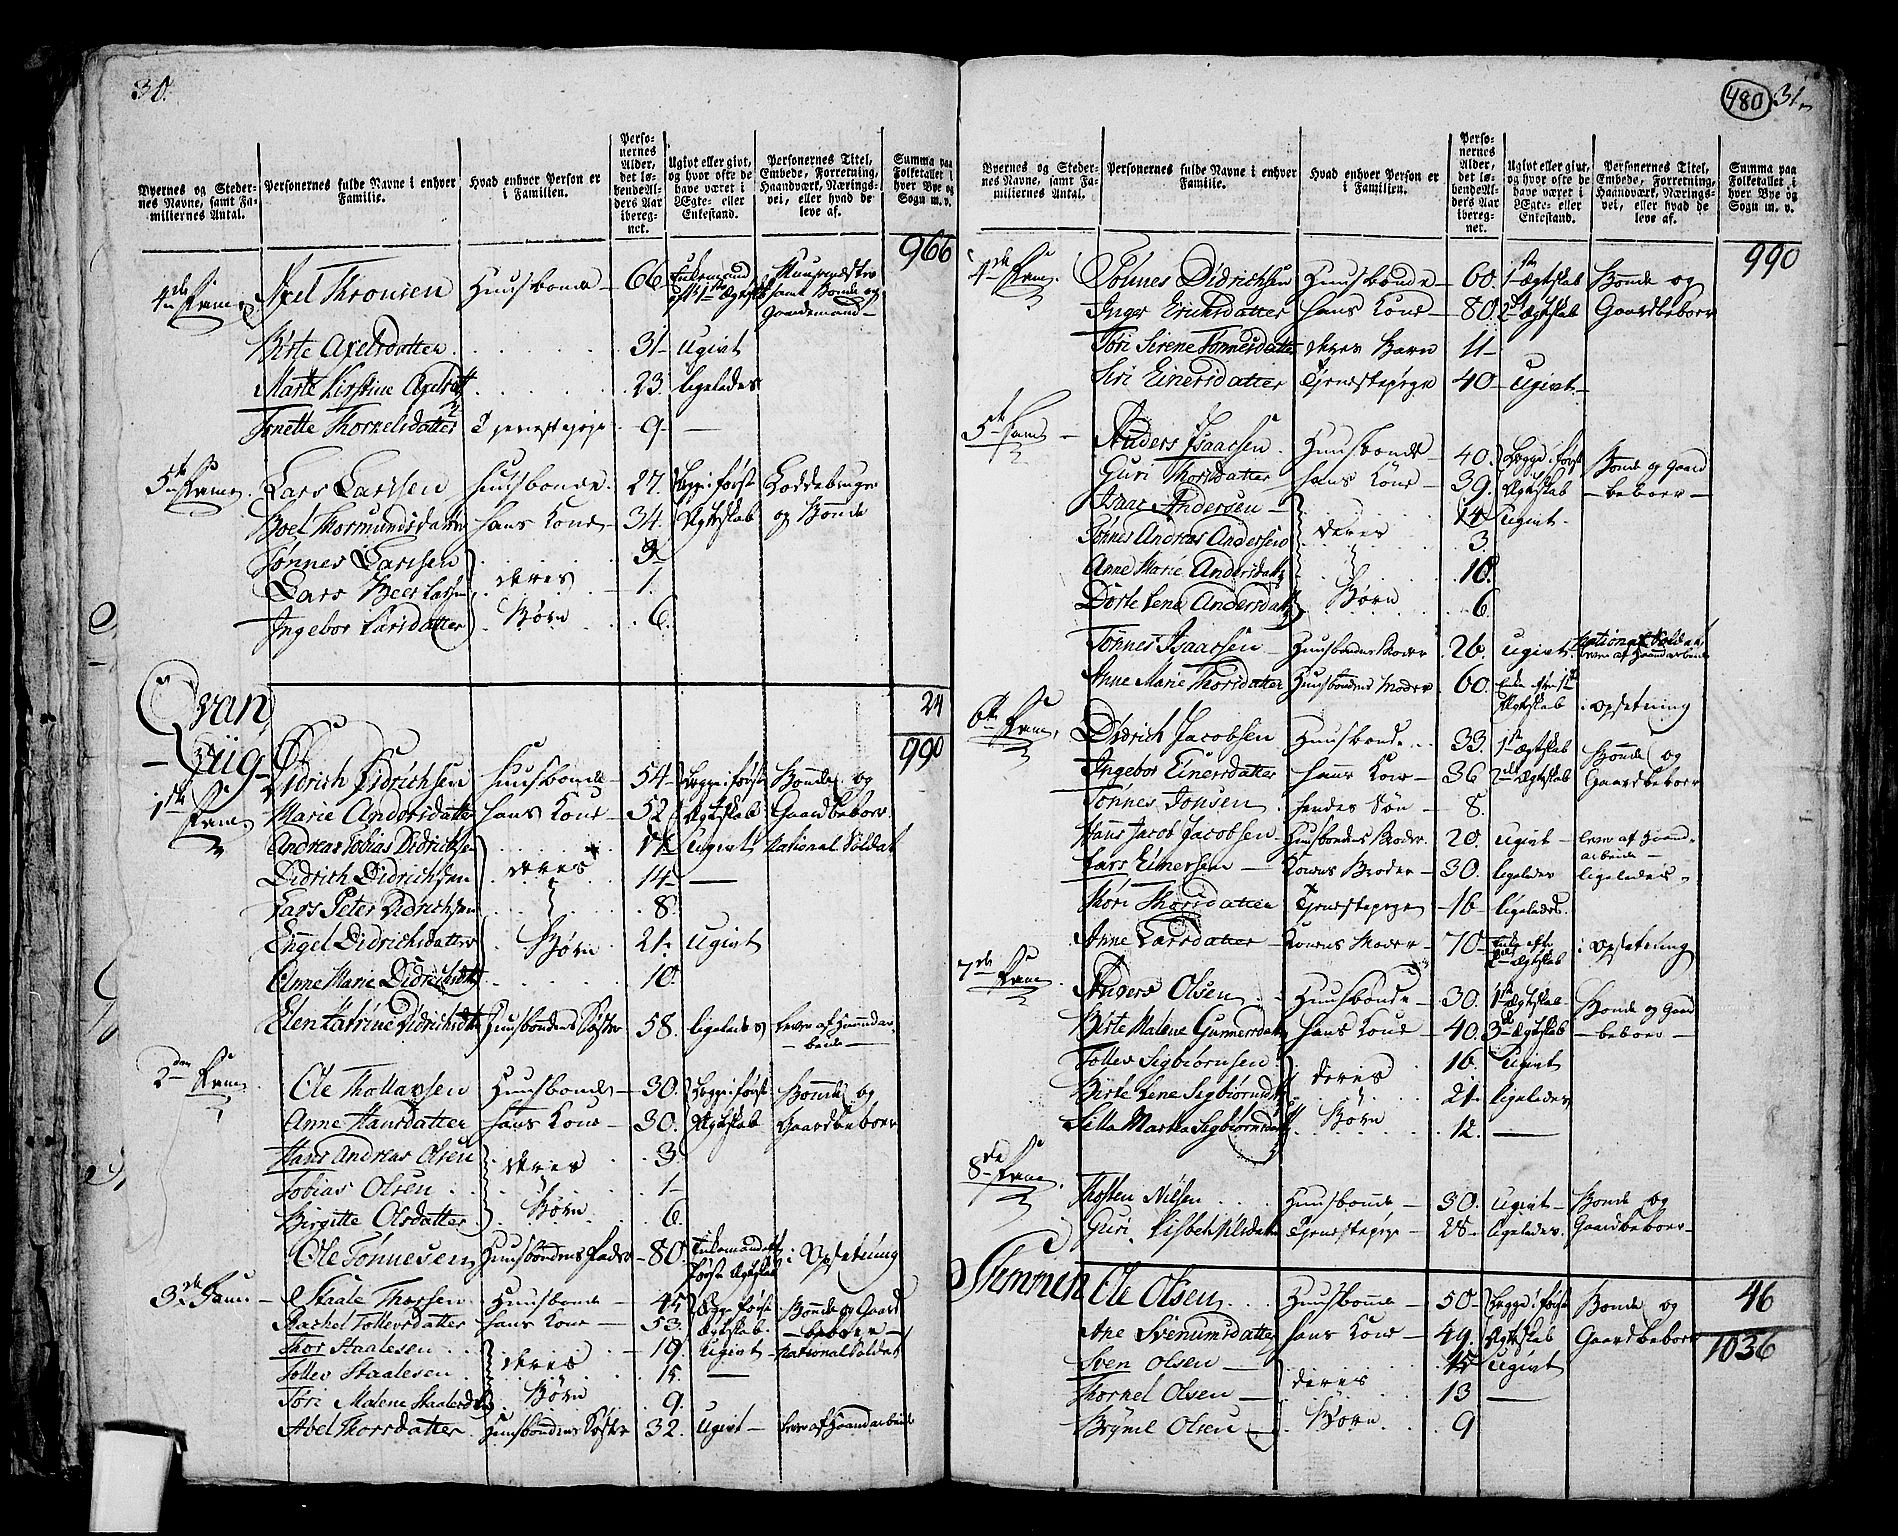 30.
Byernes og Stedernes Navne, samt Familiernes Antal.
Personernes fulde Navne i enhver Familie.
Hvad enhver Person er i Familien.
Personernes Alder, det løbende Alders Aar iberegnet.
Ugivt eller givt, og hvor ofte de have været i Ægte- eller Enkestand.
Personernes Titel, Embede, Forretning, Haandværk, Næringsvei, eller hvad de leve af.
Summa paa Folketallet i hver Bye og Sogn m. v.
966
4de Fam. Axel Thronsen Huusbonde 66 Enkemand eft. 1ste Ægteskab samt Bonde og Gaardmand
Birte Axelsdatter 31 Ugivt
Marte Kirstine Axelsdatt 23. ligeledes
Tonette Thornelsdatter Tjenestepige 9 —
5te Fam. Lars Larssen Huusbonde 27. Begge i første Loddebruger
Boel Thormundsdatter hans Kone 34. Ægteskab og Bonde
Tønnes Larssen 3
Lars Peer Larssen deres 1.
Ingebor Larsdatter Børn 6.
24
Qvan
Liig
990
1ste Fam. Didrich Didrichsen Huusbonde 54 Begge i første Bonde og
Marie Andersdatter hans Kone 52 Ægteskab Gaardbeboer
Andreas Tobias Didrichsen 17 Ugivt National Soldat
Didrich Didrichsen deres 14 —
Lars Peter Didrichsen 8.
Engel Didrichsdatter Børn 21. Ugivt
Anne Marie Didrichsdatt 10.
Elen Katrine Didrichsdatt Huusbondens Søster 58. ligeledes lever af Haandar-
beide
2den Fam. Ole Thollavsen Huusbonde 30. Begge i første Bonde og
Anne Hansdatter hans Kone 30. Ægteskab Gaardbeboer
Hans Andreas Olsen deres 3.
Tobias Olsen 1
Birgitte Olsdatter Børn 6.
Ole Tønnesen Huusbondens Fader 80. Enkemand efter første Ægteskab i Opsetning
3de Fam. Staale Thorsen Huusbonde 45 Begge i første Bonde og Gaard
Rachel Tollevsdatter hans Kone 53. Ægteskab. —beboer—
Thor Staalesen 19. Ugivt National Soldat
Tollev Staalesen deres 15. —
Tori Malene Staalesd. Børn 9.
Abel Thorsdatter Huusbondens Søster 32. Ugivt lever af Haandarbeide
480 31.
Byernes og Stedernes Navne, samt Familiernes Antal.
Personernes fulde Navne i enhver Familie.
Hvad enhver Person er i Familien.
Personernes Alder, det løbende Alders Aar iberegnet.
Ugivt eller givt, og hvor ofte de have været i Ægte- eller Enkestand.
Personernes Titel, Embede, Forretning, Haandværk, Næringsvei, eller hvad de leve af.
Summa paa Folketallet i hver Bye og Sogn m. v.
990
4de Fam. Tønnes Didrichsen Huusbonde 60. 1ste Ægteskab Bonde og
Inger Eriksdatter hans Kone 80. 2det Ægteskab Gaardbeboer
Tori Sirene Tønnesdatter deres Barn 11
Siri Einersdatter Tjenestepige 40 Ugivt
5te Fam Anders Isaacsen Huusbonde 40. Begge i første Bonde og Gaard
Guri Thorsdatter hans Kone 39. Ægteskab —beboer—
Isaac Andersen 14 Ugivt.
Tønnes Andreas Andersen deres 3.
Anne Marie Andersdatt 10.
Dorte Lene Andersdatt Børn 6.
Tønnes Isaacsen Huusbondens Broder 26. Ugivt. National Soldat lever af Haandarbeide
Anne Marie Thorsdatter Huusbondens Moder 60. Enke efter 1ste Ægteskab i Opsetning
6te Fam. Didrich Jacobsen Huusbonde 33. 1ste Ægteskab Bonde og
Ingebor Einersdatter hans Kone 36 2det Ægteskab Gaardbeboer
Tønnes Jonsen hendes Søn 8.
Hans Jacob Jacobsen Huusbondens Broder. 20. Ugivt lever af Haand-
arbeide
Lars Einersen Konens Broder 30. ligeledes ligeledes
Thori Thorsdatter Tjenestepige 16 ligeledes.
Anne Larsdatter Konens Moder 70 Enke efter 2det Ægteskab i Opsetning
7de Fam. Anders Olsen Huusbonde 30. 1ste Ægteskab Bonde og Gaard
Birte Malene Gunnersdatt hans Kone 40. 3de Ægteskab —beboer—
Tollev Sigbiørnsen deres 16. Ugivt
Birte Lene Sigbiørnsd 21. ligeledes
Silla Martha Sigbiørnsdatt Børn 12. —
8de Fam. Thosten Nilsen Huusbonde 30. Ugivt Bonde og
Guri Lisbeth Nilsdatt Tjenestepige 28 ligeledes Gaardbeboer
46
Stemmen Ole Olsen Huusbonde 50 Begge i første Bonde og
1036
Ane Svenumsdatter hans Kone 49. Ægteskab Gaardbeboer
Sven Olsen 15 Ugivt
Thornel Olsen deres 13 —
Brynil Olsen Børn 9